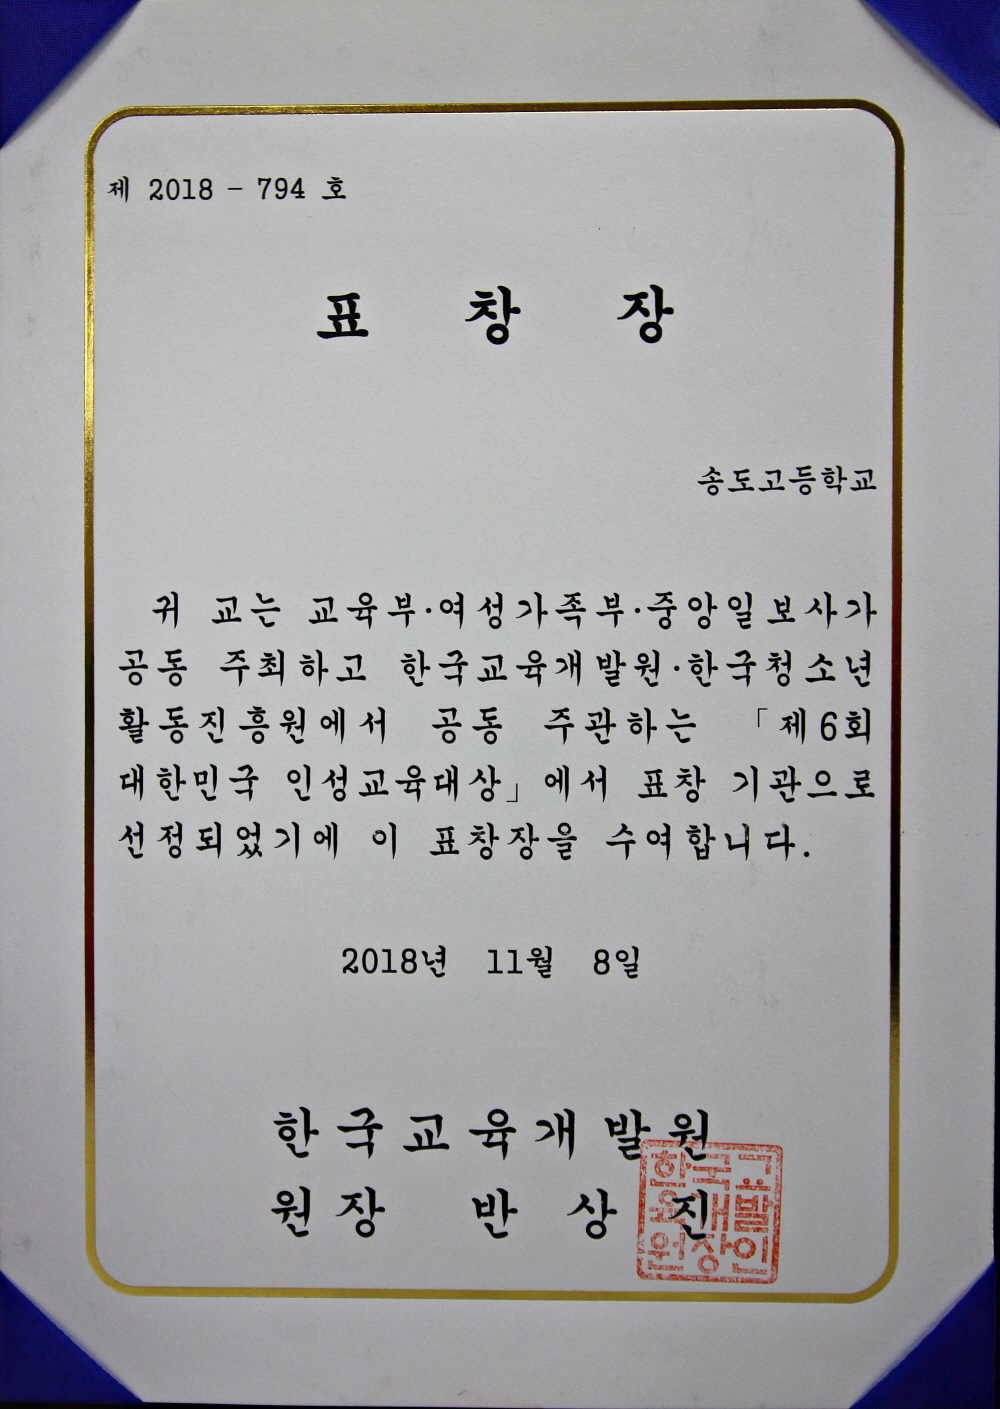 제 2018 - 794 호
표 창 장
송도고등학교
귀 교는 교육부·여성가족부·중앙일보사가
공동 주최하고 한국교육개발원·한국청소년
활동진흥원에서 공동 주관하는 「제6회
대한민국 인성교육대상」에서 표창 기관으로
선정되었기에 이 표창장을 수여합니다.
2018년 11월 8일
한국교육개발원
원장 반 상 진
한국교
육개발
원장인